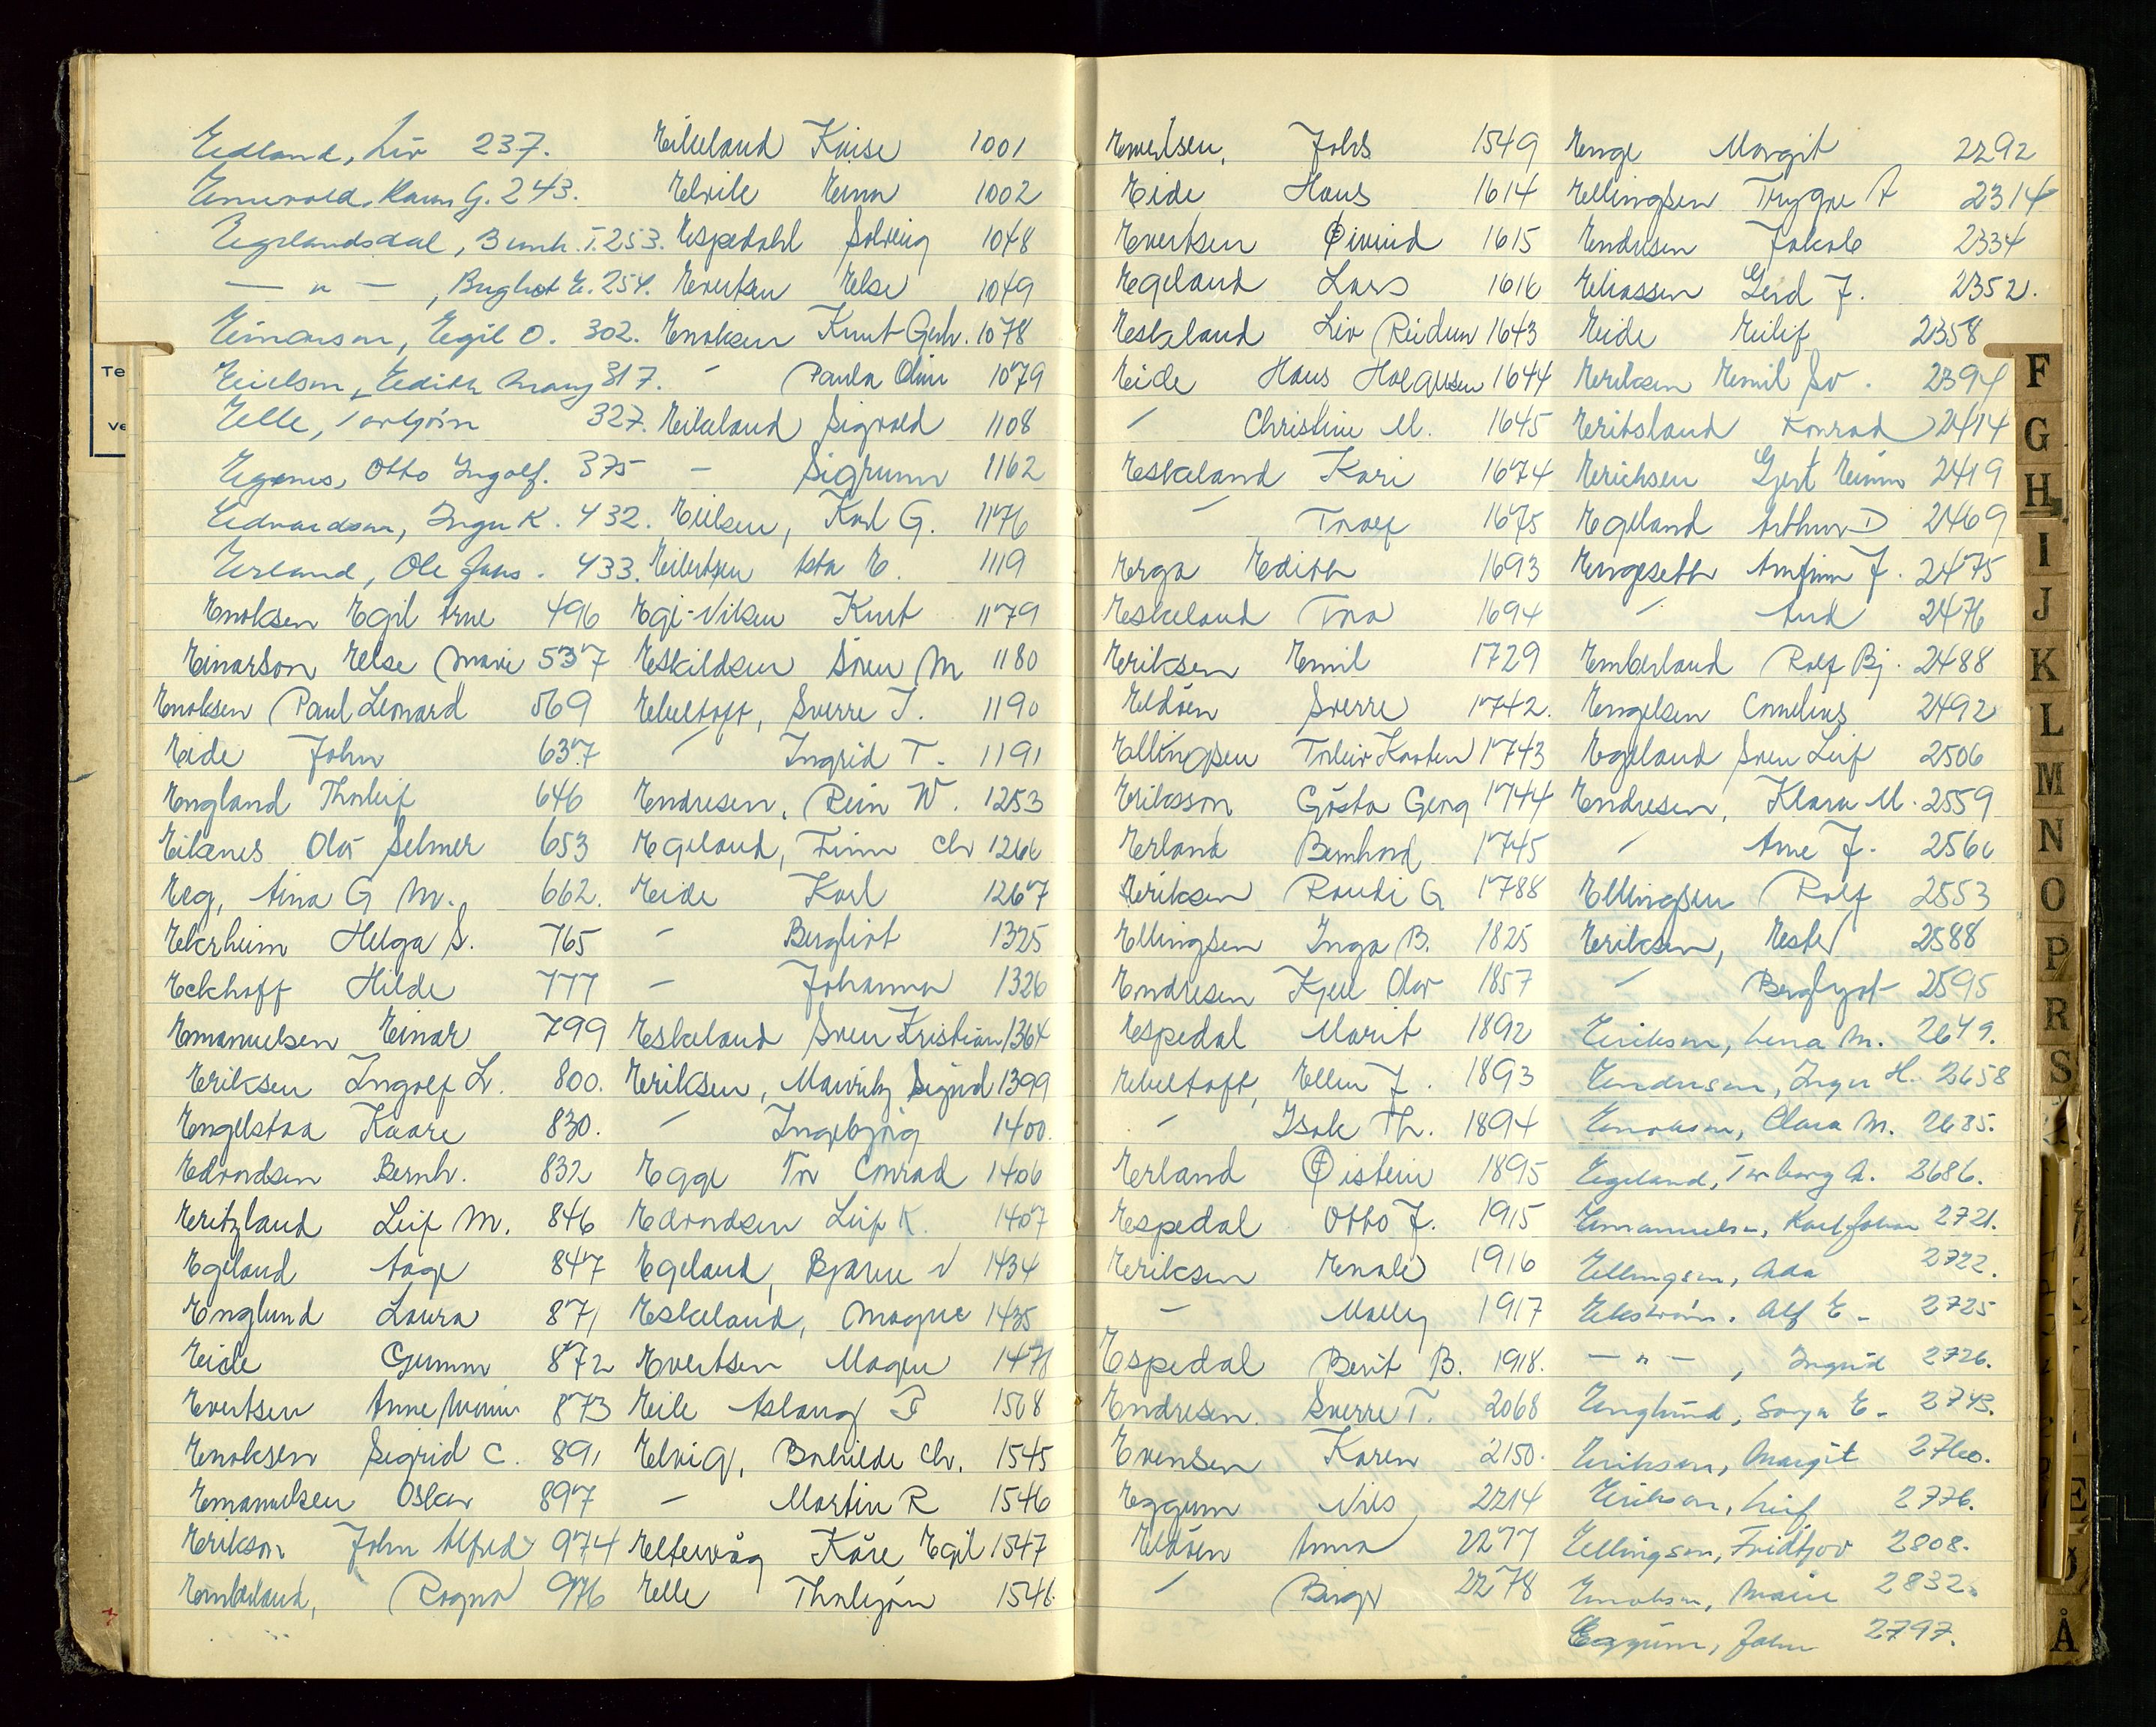 Edland, Liv 237.
Emerold, Karen G. 243.
Egelandsdal, Bernh. T. 253.
— " — , Bergliot E. 254.
Einarson, Egil O. 302.
Eielsen, Edith Marg 317.
Elle, Torbjörn 327.
Egenes, Otto Ingolf. 375
Edvardsen, Inger K. 432.
Erland, Ole Jans. 433.
Enoksen Egil Arne 496
Einarson Else Marie 537
Enoksen Paul Leonard 569
Eide John 637
England Thorleif 646
Eikenes Olav Selmer 653
Eeg, Aina G M. 662.
Ekerheim Helga S. 765
Eckhoff Hilde 777
Emanuelsen Einar 799
Eriksen Ingolf L. 800.
Engelstaa Kaare 830.
Edvardsen Bernh. 832
Eritzland Leif M. 846
Egeland Aage 847
Englund Laura 871
Eide Gunnar 872
Evertsen Anne Marie 873
Enoksen Sigrid C. 891
Emanuelsen Oskar 897
Erikson John Alfred 974
Emberland, Ragna 976
Eikeland Kaise 1001
Elvile Einar 1002
Espedahl Solveig 1048
Evertsen Else 1049
Enoksen Knut Gerh. 1078
- Paula Oline 1079
Eikeland Sigvald 1108
- Sigrunn 1162
Eielsen, Karl G. 1176
Eilertsen Asta E. 1119
Ege-Nilsen Knut 1179
Eskildsen Sören M 1180
Ebeltoft, Sverre J. 1190
- Ingrid T. 1191
Endresen, Rein W. 1253
Egeland, Finn Chr 1266
Eide Karl 1267
- Bergliot 1325
- Johanna 1326
Eskeland Sven Kristian 1364
Eriksen, Mauritz Sigurd 1399
- Ingebjörg 1400.
Egge Tor Conrad 1406
Edvardsen Leif K. 1407
Egeland, Bjarne V 1434
Eskeland, Magne 1435
Evertsen Magne 1478
Eile Aslaug P 1508
Elvig, Bothilde Chr. 1545
- Martin R 1546
Eltervåg Kåre Egil 1547
Elle Thorbjørn 1548
Evertsen, Johs 1549
Eide Hans 1614
Evertsen Øivind 1615
Egeland Lars 1616
Eskeland Liv Reidun 1643
Eide Hans Halgusen 1644
- Christine M. 1645
Eskeland Kari 1674
- Toralf 1675
Erga Edith 1693
Eskeland Tora 1694
Eriksen Emil 1729
Eldöen Sverre 1742.
Ellingsen Torleiv Karsten 1743
Eriksson Gösta Georg 1744
Erland Bernhard 1745
Eriksen Randi G 1788
Ellingsen Inga B. 1825
Endresen Kjell Olav 1857
Espedal Marit 1892
Ebeltoft, Ellen J. 1893
- Isak Th. 1894
Erland Øistein 1895
Espedal Otto J. 1915
Eriksen Enole 1916
- Molly 1917
Espedal Berit B. 1918.
Endresen. Sverre T. 2068
Evensen Karen 2150.
Eggum Nils 2214
Eldöen Anna 2277
- Birger 2278
Enge Margit 2292
Ellingsen Trygve A 2314
Endresen Jakob 2334
Eliassen Gerd J. 2352.
Eide Eilif 2358
Eriksen Emil Sv. 2394
Eritsland Konrad 2414
Erichsen Gert Einar 2419
Egeland Arthur D 2469
Engesett Arnfinn J. 2475
- Aud 2476
Emberland Rolf Bj. 2488
Engelsen Cornelius 2492
Egeland Sven Leif 2506
Endresen, Klara M. 2559
- Arne J. 2560
Ellingsen Rolf 2553
Eriksen, Ester 2588
- Bergljot 2595
Eriksen, Lena M. 2649.
Endresen, Inger H. 2658
Enoksen, Clara M. 2685.
Egeland, Torborg A. 2686.
Emanuelsen, Karl Johan 2721.
Ellingsen, Ada 2722.
Ekström. Alf E. 2725
— " — , Ingrid 2726.
Englund, Sonja E. 2743.
Eriksen, Margit 2760.
Eriksen, Leif 2776.
Ellingsen, Fridtjov 2808.
Enoksen, Marie 2832.
Eggum, John 2797.
Te
ve
F
G
H
I
J
K
L
M
N
O
P
R
S
E
Å